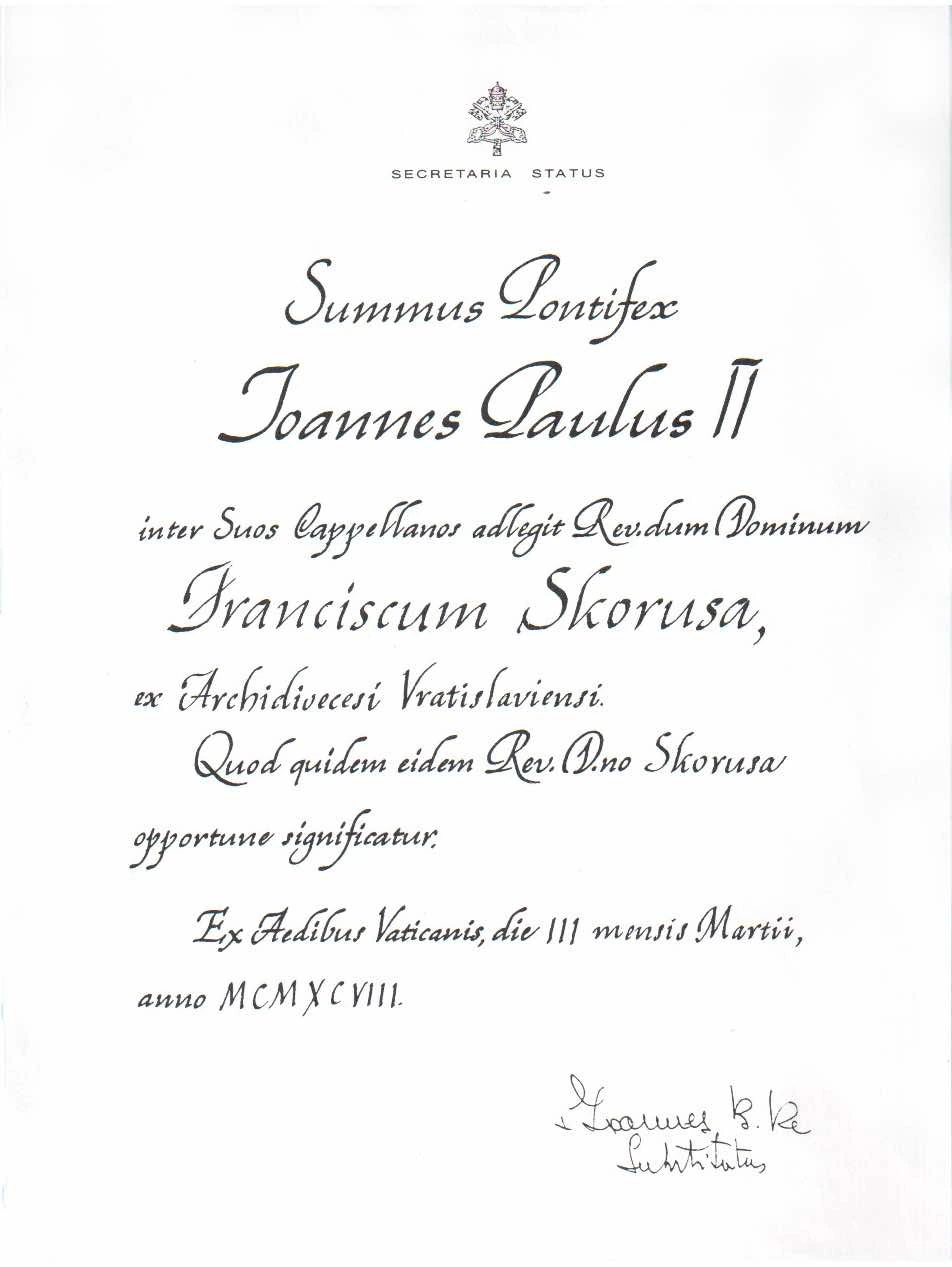 SECRETARIA STATUS
Summus Pontifex
Ioannes Paulus II
inter Suos Cappellanos adlegit Rev.dum Dominum
Franciscum Skorusa,
ex Archidioecesi Vratislaviensi.
Quod quidem eidem Rev. D.no Skorusa
opportune significatur.
Ex Aedibus Vaticanis, die III mensis Martii,
anno MCMXCVIII.
+ Ioannes B. Re
Substitutus